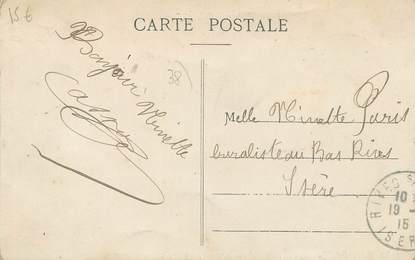 15€
CARTE POSTALE
Bonjour Minette
38
Melle Minette Paris
buraliste au Bas Rives
Isère
RIVES S
10
19 -
15
ISER